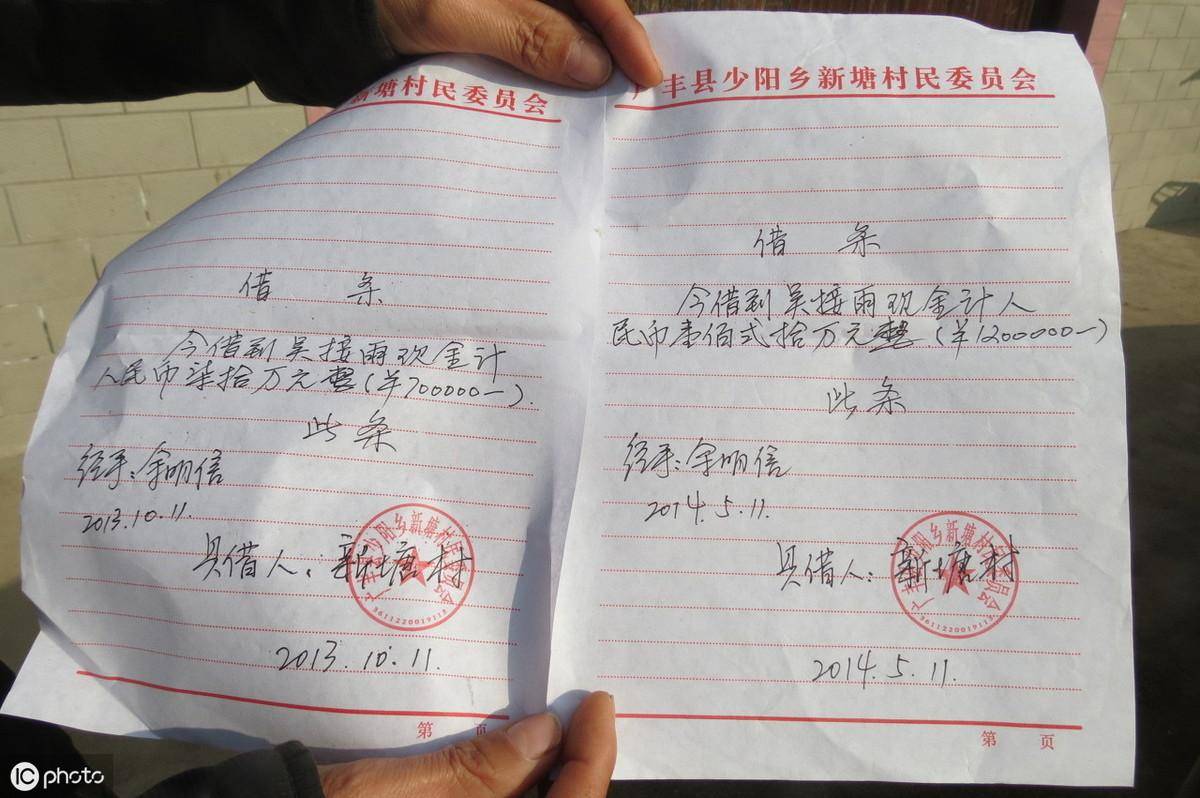 塘村民委员会
借 条
今借到吴接雨现金计
人民币柒拾万元整(¥700000—).
此条
经手:余明信
2013.10.11.
具借人:新塘村
广丰县少阳乡新塘村民委员会
3611220019113
2013.10.11.
第 页
广丰县少阳乡新塘村民委员会
借 条
今借到吴接雨现金计人
民币壹佰贰拾万元整(¥1200000—)
此条
经手:余明信
2014.5.11.
具借人:新塘村
广丰县少阳乡新塘村民委员会
3611220019113
2014.5.11.
第 页
IC photo